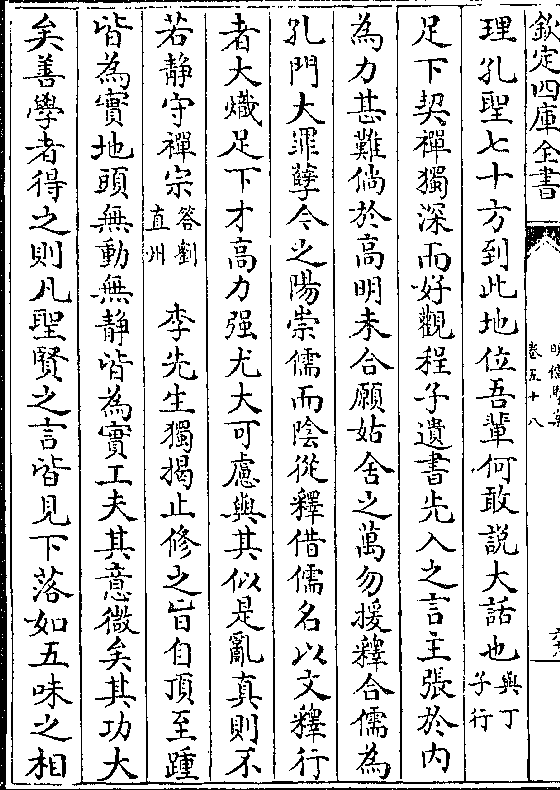 欽定四庫全書
卷五十八
理孔聖七十方到此地位吾輩何敢說大話也與丁子行
足下契禪獨深而好觀程子遺書先入之言主張於內
為力甚難倘於高明未合願姑舍之萬勿援釋合儒為
孔門大罪孽今之陽崇儒而陰從釋借儒名以文釋行
者大熾足下才高力强尤大可慮與其似是亂真則不
若靜守禪宗答劉直州　李先生獨揭止修之旨自頂至踵
皆為實地頭無動無靜皆為實工夫其意微矣其功大
矣善學者得之則凡聖賢之言皆見下落如五味之相